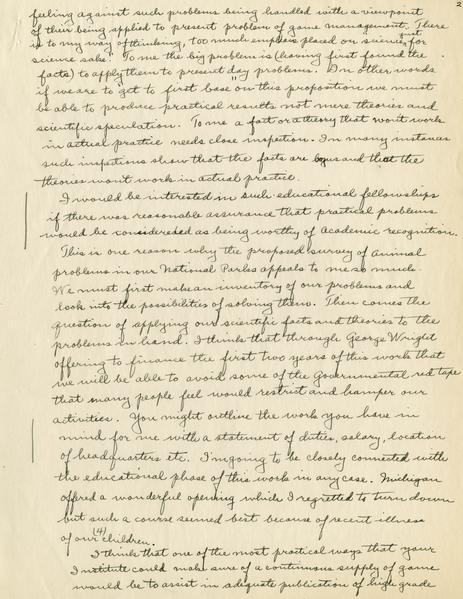 2
feeling against such problems being handled with a viewpoint
of their being applied to present problem of game management. There
is to my way of thinking, too much emphasis placed on science just for
science sake. To me the big problem is (having first found the
facts) to apply them to present day problems. In other words
if we are to get to first base on this proposition we must
be able to produce practical results not mere theories and
scientific speculation. To me a fact or a theory that wont work
in actual practice needs close inspetion. In many instances
such inspetions show that the facts are bogus and that the
theories wont work in actual practice.
I would be interested in such educational fellowships
if there was reasonable assurance that practical problems
would be considereded as being worthy of Academic recognition.
This is one reason why the proposed survey of Animal
problems in our National Parks appeals to me so much.
We must first make an inventory of our problems and
look into the possibilities of solving them. Then comes the
question of applying our scientific facts and theories to the
problems in hand. I think that through George Wright
offering to finance the first two years of this work that
we will be able to avoid some of the Governmental red tape
that many people feel would restrict and hamper our
activities. You might outline the work you have in
mind for me with a statement of duties, salary, location
of headquarters etc. I'm going to be closely connected with
the educational phase of this work in any case. Michigan
offered a wonderful opening which I regretted to turn down
but such a course seemed best because of recent illness
of our (4) children.
I think that one of the most practical ways that your
Institute could make sure of a continuous supply of game
would be to assist in adequate publication of high grade